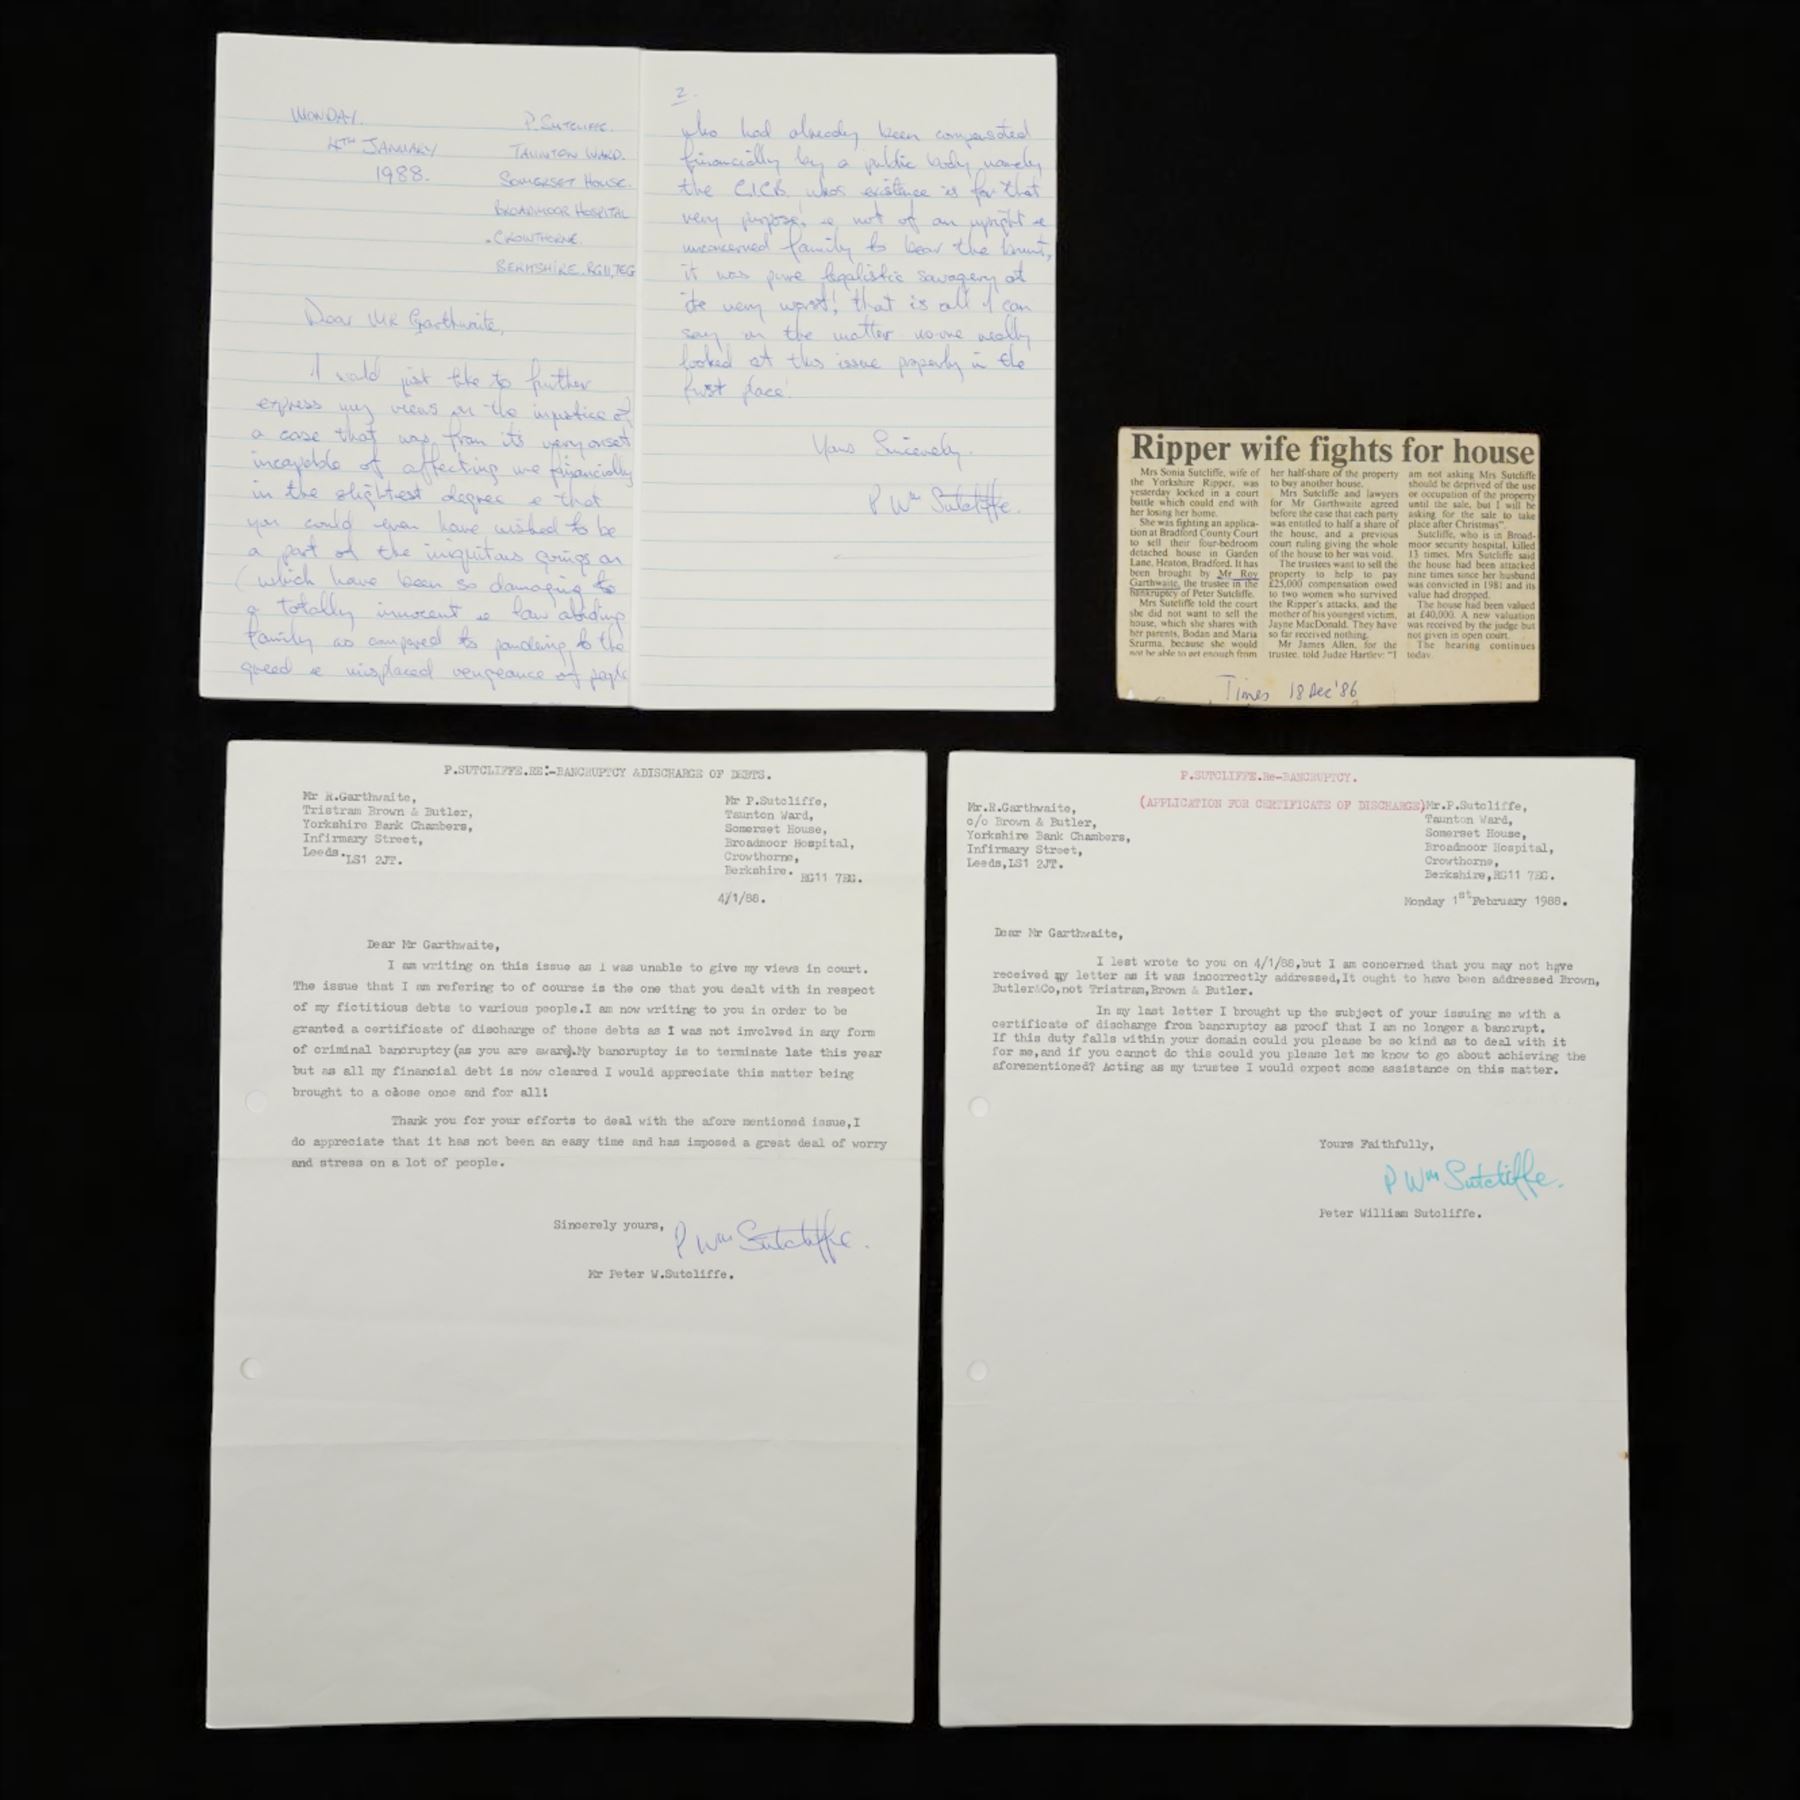 MONDAY.
4TH JANUARY
1988.
P. SUTCLIFFE.
TAUNTON WARD.
SOMERSET HOUSE.
BROADMOOR HOSPITAL
CROWTHORNE.
BERKSHIRE. RG11, 7EG
Dear Mr Garthwaite,
I would just like to further
express my views on the injustice of
a case that was from its very onset
incapable of affecting me financially
in the slightest degree & that
you could even have wished to be
a part of the iniquitous goings on
(which have been so damaging to
a totally innocent & law abiding
family as compared to pandering to the
greed & misplaced vengeance of people
2.
who had already been compensated
financially by a public body namely
the C.I.C.B. whos existence is for that
very purpose! & not of an upright &
unconcerned family to bear the brunt,
it was pure legalistic savagery at
its very worst! that is all I can
say on the matter no-one really
looked at this issue properly in the
first place!
Yours Sincerely.
P Wm Sutcliffe.
Ripper wife fights for house
Mrs Sonia Sutcliffe, wife of
the Yorkshire Ripper, was
yesterday locked in a court
battle which could end with
her losing her home.
She was fighting an applica-
tion at Bradford County Court
to sell their four-bedroom
detached house in Garden
Lane, Heaton, Bradford. It has
been brought by Mr Roy
Garthwaite, the trustee in the
bankruptcy of Peter Sutcliffe.
Mrs Sutcliffe told the court
she did not want to sell the
house, which she shares with
her parents, Bodan and Maria
Szurma, because she would
not be able to get enough from
her half-share of the property
to buy another house.
Mrs Sutcliffe and lawyers
for Mr Garthwaite agreed
before the case that each party
was entitled to half a share of
the house, and a previous
court ruling giving the whole
of the house to her was void.
The trustees want to sell the
property to help to pay
£25,000 compensation owed
to two women who survived
the Ripper's attacks, and the
mother of his youngest victim,
Jayne MacDonald. They have
so far received nothing.
Mr James Allen, for the
trustee, told Judge Hartley: "I
am not asking Mrs Sutcliffe
should be deprived of the use
or occupation of the property
until the sale, but I will be
asking for the sale to take
place after Christmas".
Sutcliffe, who is in Broad-
moor security hospital, killed
13 times. Mrs Sutcliffe said
the house had been attacked
nine times since her husband
was convicted in 1981 and its
value had dropped.
The house had been valued
at £40,000. A new valuation
was received by the judge but
not given in open court.
The hearing continues
today.
Times 18 Dec '86
P.SUTCLIFFE.RE:-BANCRUPTCY &DISCHARGE OF DEBTS.
Mr R.Garthwaite,
Tristram Brown & Butler,
Yorkshire Bank Chambers,
Infirmary Street,
Leeds. LS1 2JT.
Mr P.Sutcliffe,
Taunton Ward,
Somerset House,
Broadmoor Hospital,
Crowthorne,
Berkshire. RG11 7EG.
4/1/88.
Dear Mr Garthwaite,
I am writing on this issue as I was unable to give my views in court.
The issue that I am refering to of course is the one that you dealt with in respect
of my fictitious debts to various people.I am now writing to you in order to be
granted a certificate of discharge of those debts as I was not involved in any form
of criminal bancruptcy(as you are aware).My bancruptcy is to terminate late this year
but as all my financial debt is now cleared I would appreciate this matter being
brought to a close once and for all!
Thank you for your efforts to deal with the afore mentioned issue,I
do appreciate that it has not been an easy time and has imposed a great deal of worry
and stress on a lot of people.
Sincerely yours,
P Wm Sutcliffe.
Mr Peter W.Sutcliffe.
P.SUTCLIFFE.Re-BANCRUPTCY.
(APPLICATION FOR CERTIFICATE OF DISCHARGE)
Mr.R.Garthwaite,
c/o Brown & Butler,
Yorkshire Bank Chambers,
Infirmary Street,
Leeds,LS1 2JT.
Mr.P.Sutcliffe,
Taunton Ward,
Somerset House,
Broadmoor Hospital,
Crowthorne,
Berkshire,RG11 7EG.
Monday 1st February 1988.
Dear Mr Garthwaite,
I lest wrote to you on 4/1/88,but I am concerned that you may not have
received my letter as it was incorrectly addressed,It ought to have been addressed Brown,
Butler&Co,not Tristram,Brown & Butler.
In my last letter I brought up the subject of your issuing me with a
certificate of discharge from bancruptcy as proof that I am no longer a bancrupt.
If this duty falls within your domain could you please be so kind as to deal with it
for me,and if you cannot do this could you please let me know to go about achieving the
aforementioned? Acting as my trustee I would expect some assistance on this matter.
Yours Faithfully,
P Wm Sutcliffe.
Peter William Sutcliffe.